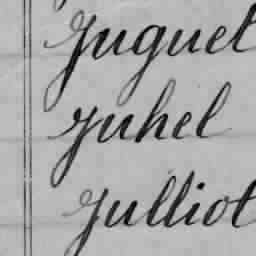 Juguet
Juhel
Julliot